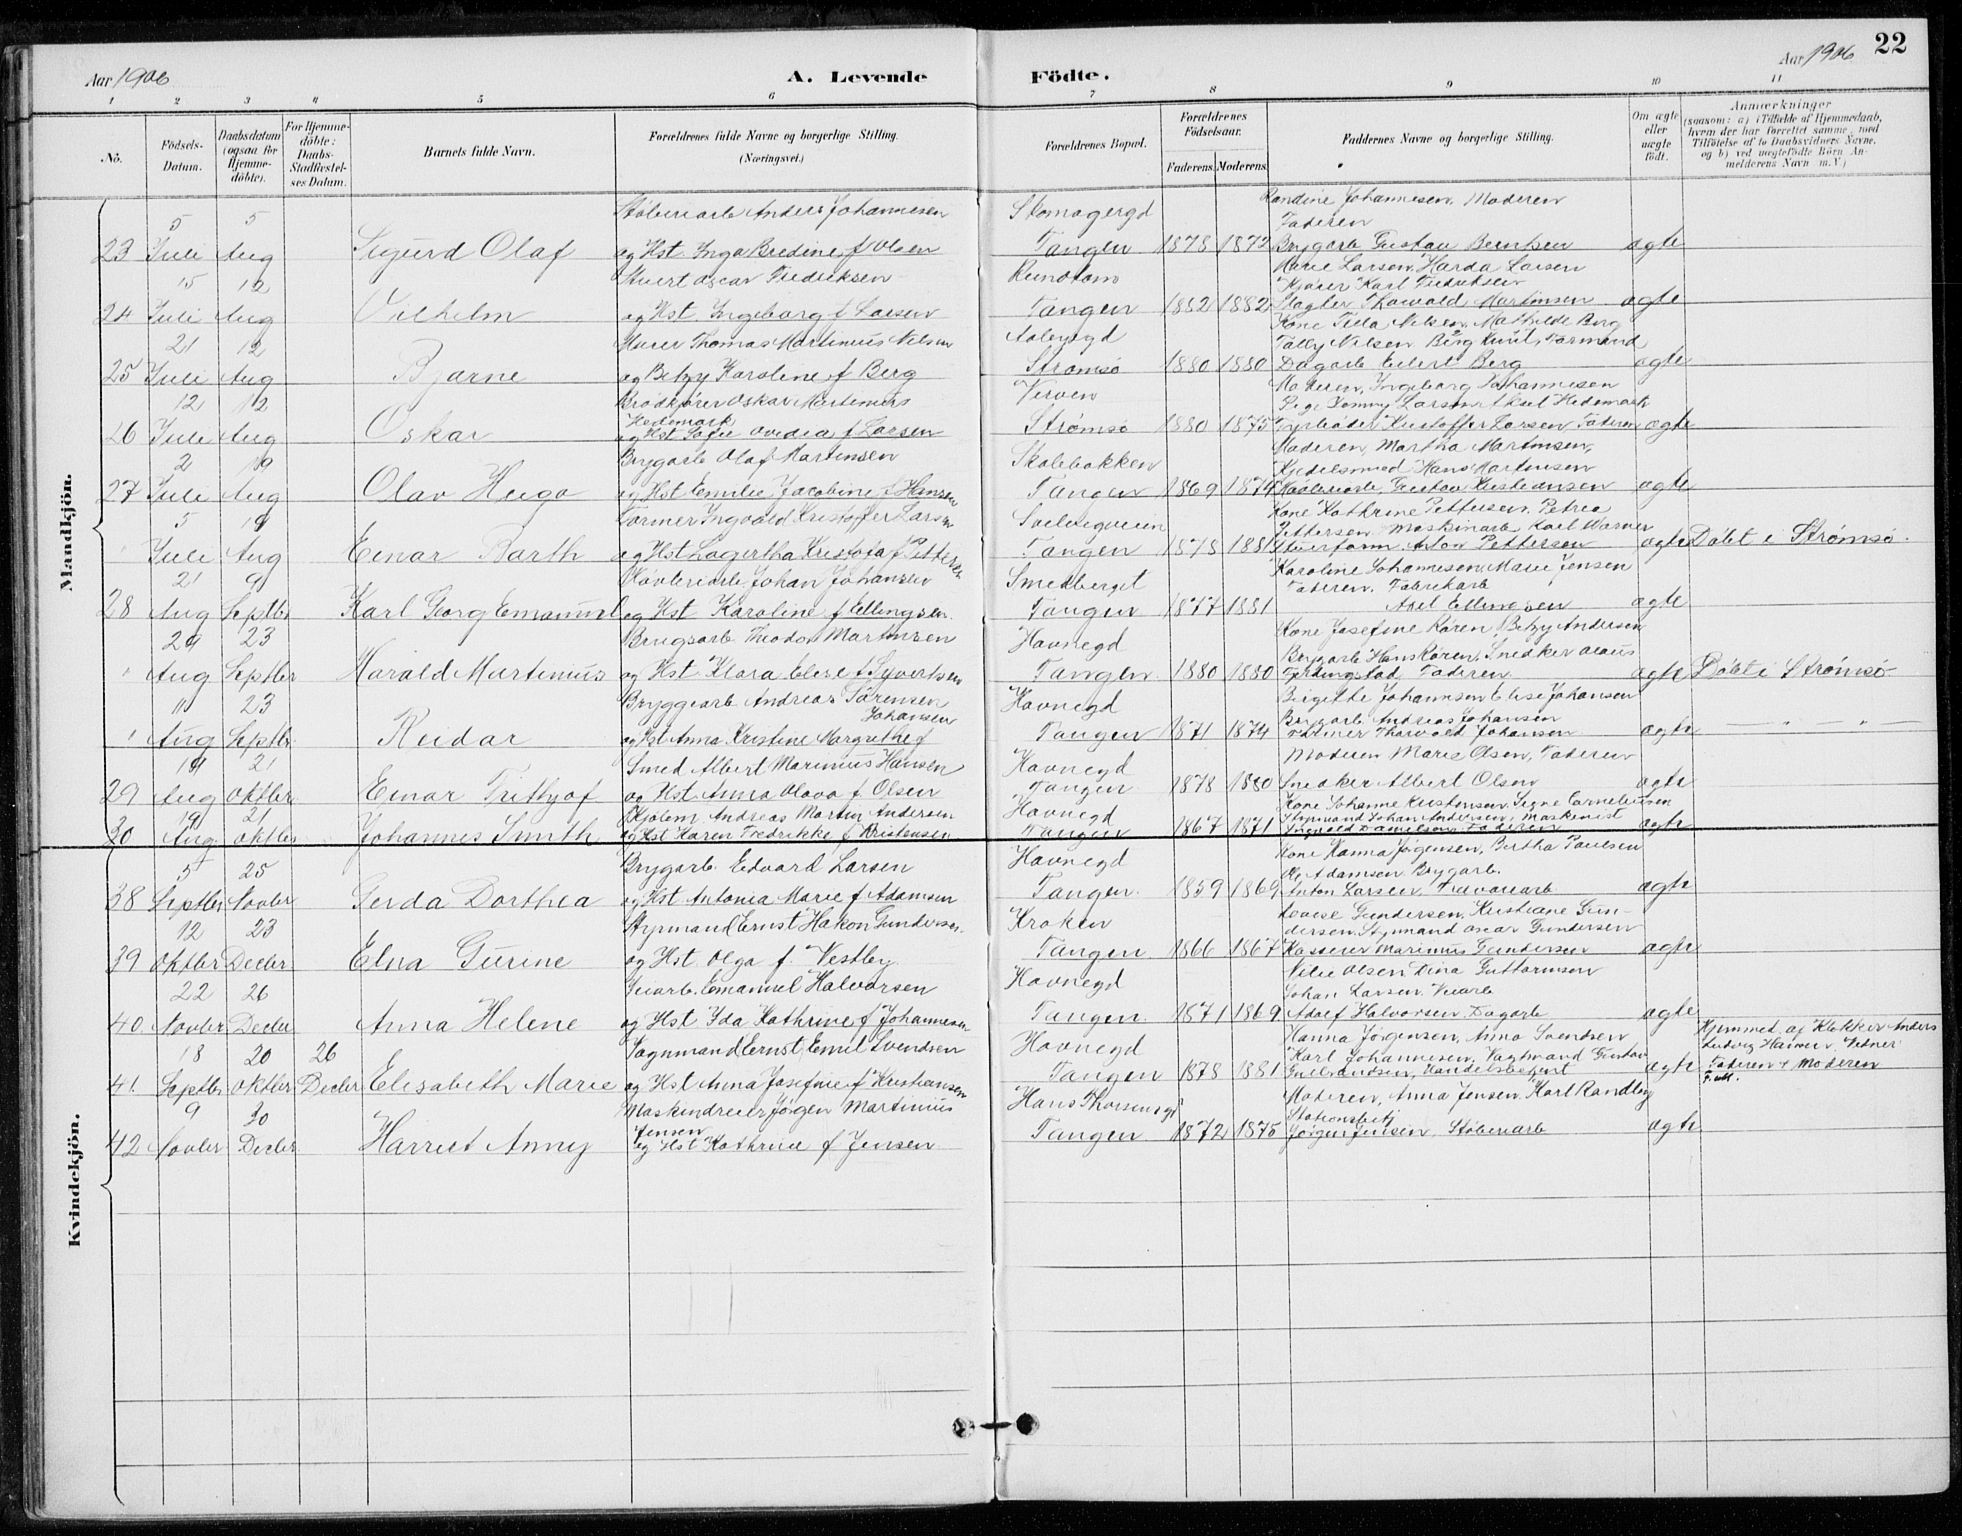 22
Aar 1906
A. Levende
Födte.
Aar 1906
1 2 3 4 5 6 7 8 9 10 11
No.
Födsels-Datum.
Daabsdatum (ogsaa for Hjemme-döbte).
For Hjemme-döbte: Daabs-Stadfæstel-ses Datum.
Barnets fulde Navn.
Forældrenes fulde Navne og borgerlige Stilling. (Næringsvei.)
Forældrenes Bopæl.
Forældrenes Födselsaar.
Faderens. Moderens.
Faddernes Navne og borgerlige Stilling.
Om ægte eller uægte födt.
Anmærkninger
(saasom: a) i Tilfælde af Hjemmedaab, hvem der har forrettet samme, med Tilföielse af to Daabsvidners Navne, og b) ved uægtefödte Börn An-melderens Navn m. V.)
Mandkjön.
Støberiarb Anders Johannesen Skomagergd Randine Johannesen, Moderen
5 5 Faderen
23 Juli Aug Sigurd Olaf og Hst. Inga Bredine f Olsen Tangen 1878 1872 Bryggarb Gustav Berntsen ægte
15 12 Oscar Fredriksen Rundtom Marie Larsen, Harda Larsen
Karl Fredriksen
24 Juli Aug Vilhelm og Hst. Ingeborg f Larsen Tangen 1882 1882 Slagter Thorvald Martinsen ægte
21 12 Murer Thomas Martinius Nilsen Kone Tilla Nilsen, Mathilde Berg
Tolly Nilsen Berg Knut, Formand
25 Juli Aug Bjarne og Betzy Karoline f Berg Strømsø 1880 1880 Dagarb Eilert Berg ægte
12 12 Brødkjører Oskar Martinius Verven Moderen, Ingeborg Johannesen
Hedemark Pige Jenny Larsen Aksel Hedemark
26 Juli Aug Oskar og Hst Sofie Ovedia f Larsen Strømsø 1880 1875 Kristoffer Larsen Faderen ægte
2 19 Bryggarb Olaf Martinsen Skolebakken Moderen, Martha Martinsen,
Kjedelsmed Hans Martinsen
27 Juli Aug Olav Hugo og Hst Emilie Jacobine f Hansen Tangen 1869 1874 Gustav Kristiansen ægte
5 19 Former Ingvald Kristoffer Larsen Kone Kathrine Pettersen, Petrea
Pettersen Maskinarb Karl Warner
" Juli Aug Einar Barth og Hst Lagertha Kristofa f Petters. Tangen 1878 1881 Anton Pettersen ægte Døbt i Strømsø.
21 9 Høvleriarb Johan Johansen Smedberget Karoline Johannesen, Marie Jensen
Faderen, Fabrikarb
28 Aug Septbr Karl Georg Emanuel og Hst Karoline f Ellingsen. Tangen 1877 1881 Axel Ellingsen ægte
29 23 Brugsarb Theodor Martinsen Havnegd Kone Josefine Kören, Betzy Andersen
Bryggarb Hans Kören, Snedker Olaus
" Aug Septbr Harald Martinius og Hst Klara Elise f Syvertsen Tangen 1880 1880 Faderen ægte Døbt i Strømsø
11 23 Bryggearb Andreas Sørensen Havnegd Birgitte Johannsen, Elise Johansen
Johansen Bryggarb Andreas Johansen
" Aug Septbr. Reidar og Hst Anna Kristine Margrethe f Tangen 1871 1874 Thorvald Johansen ægte — " — " —
19 21 Smed Albert Marinius Hansen Havnegd Moderen Marie Olsen, Faderen
29 Aug Oktbr Einar Fritjof og Hst. Anna Olava f Olsen Tangen 1878 1880 Snedker Albert Olsen ægte
19 21 Andreas Martin Andersen Havnegd Kone Johanne Kristensen, Signe Corneliussen
Styrmand Johan Andersen, Maskinist
30 Aug. Oktbr. Johannes Smith og Hst Karen Fredrikke f Kristensen Tangen 1867 1871 Ingvald Danielsen, Faderen ægte
Kvindekjön.
5 25 Bryggarb. Edvard Larsen Havnegd Kone Hanna Jørgensen, Bertha Paulsen
Ole Adamsen Bryggarb.
38 Septbr Novbr Gerda Dorthea og Hst Antonia Marie f Adamsen Tangen. 1859 1869 Anton Larsen, Trævarearb ægte
12 23 Styrmand Ernst Hakon Gundersen. Kroken Lovise Gundersen, Kristiane Gun-
dersen, Styrmand Oscar Gundersen
39 Oktbr Decbr. Elna Gurine og Hst. Olga f. Vestby Tangen. 1866 1867 Kasserer Marinius Gundersen ægte
22 26 Emanuel Halvorsen Havnegd Olsen Dina Guttormsen
Johan Larsen
40 Novbr Decbr Anna Helene og Hst Ida Kathrine f Johannesen Tangen. 1871 1869 Adolf Halvorsen Dagarb ægte
18 20 26 Vognmand Ernst Emil Svendsen Havnegd Hanna Jørgensen, Anna Svendsen Hjemmed. af Klokker Anders
Karl Johannesen, Vagtmand Gustav Ludvig Vidner:
41. Septbr Oktbr Decbr Elisabeth Marie og Hst Anna Josefine f Kristiansen Tangen 1878 1881 Gulbrandsen, Handelsbetjent ægte Faderen & Moderen
9 30 Maskindreier Jørgen Martinius Hans Thorsensgd Moderen, Anna Jensen, Karl Randby
Jensen Stationsbetj
42 Novbr Decbr Harriet Anny og Hst Kathrine f Jensen Tangen 1872 1875 Jørgen Jensen, Støberiarb ægte